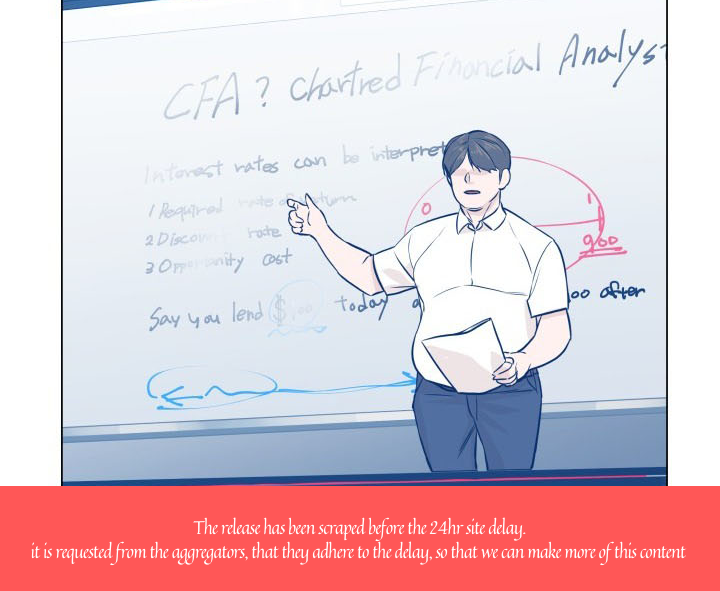 CFA? Chartred Financial Analyst
Interest rates can be interpret
1 Required rate of return
0
1
2 Discount rate
900
3 Opportunity cost
Say you lend $ today
00 after
The release has been scraped before the 24hr site delay.
it is requested from the aggregators, that they adhere to the delay, so that we can make more of this content